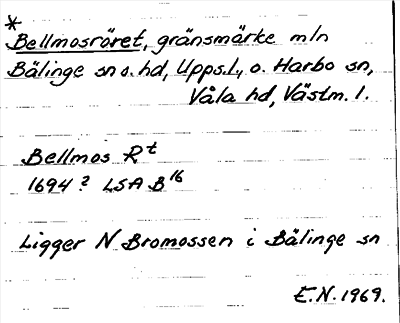 *
Bellmosröret, gränsmärke mln
Bälinge sn o. hd, Upps.l., o. Harbo sn,
Våla hd, Västm. l.
Bellmos Rt
1694? LSA B16
Ligger N Bromossen i Bälinge sn
E.N. 1969.